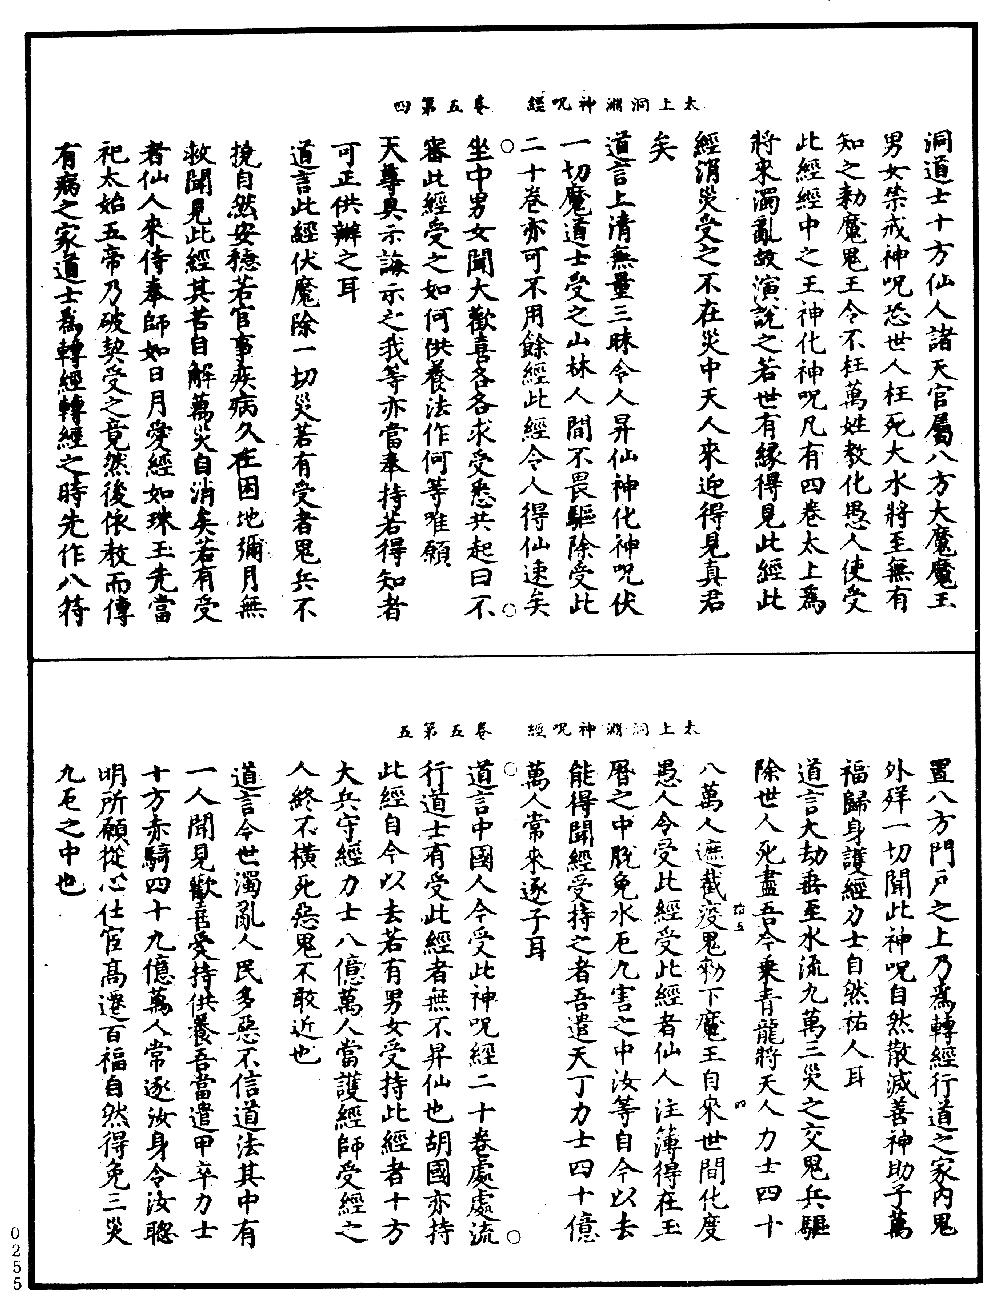 太上洞淵神呪經　卷五第四
洞道士十方仙人諸天官屬八方大魔魔王
男女禁戒神呪恐世人枉死大水將至無有
知之勑魔鬼王令不枉萬姓教化愚人使受
此經經中之王神化神呪凡有四卷太上爲
將來濁亂故演說之若世有緣得見此經此
經消災受之不在災中天人來迎得見真君
矣
道言上清無量三昧令人昇仙神化神呪伏
一切魔道士受之山林人間不畏驅除受此
二十卷亦可不用餘經此經令人得仙速矣
坐中男女聞大歡喜各各求受悉共起曰不
審此經受之如何供養法作何等唯願
天尊具示誨示之我等亦當奉持若得知者
可正供辦之耳
道言此經伏魔除一切災若有受者鬼兵不
撓自然安穩若官事疾病久在困地彌月無
救聞見此經其苦自解萬災自消矣若有受
者仙人來侍奉師如日月愛經如珠玉先當
祀太始五帝乃破契受之竟然後依教而傳
有病之家道士爲轉經轉經之時先作八符
太上洞淵神呪經　卷五第五
置八方門戶之上乃爲轉經行道之家內鬼
外殃一切聞此神呪自然散滅善神助子萬
福歸身護經力士自然祐人耳
道言大劫垂至水流九萬三災之交鬼兵驅
除世人死盡吾今乘青龍將天人力士四十
八萬人遮截疫鬼勑下魔王自來世間化度
愚人令受此經受此經者仙人注簿得在玉
曆之中脫免水厄九害之中汝等自今以去
能得聞經受持之者吾遣天丁力士四十億
萬人常來逐子耳
道言中國人今受此神呪經二十卷處處流
行道士有受此經者無不昇仙也胡國亦持
此經自今以去若有男女受持此經者十方
大兵守經力士八億萬人當護經師受經之
人終不橫死惡鬼不敢近也
道言今世濁亂人民多惡不信道法其中有
一人聞見歡喜愛持供養吾當遣甲卒力士
十方赤騎四十九億萬人常逐汝身令汝聰
明所願從心仕宦高遷百福自然得免三災
九厄之中也
0255